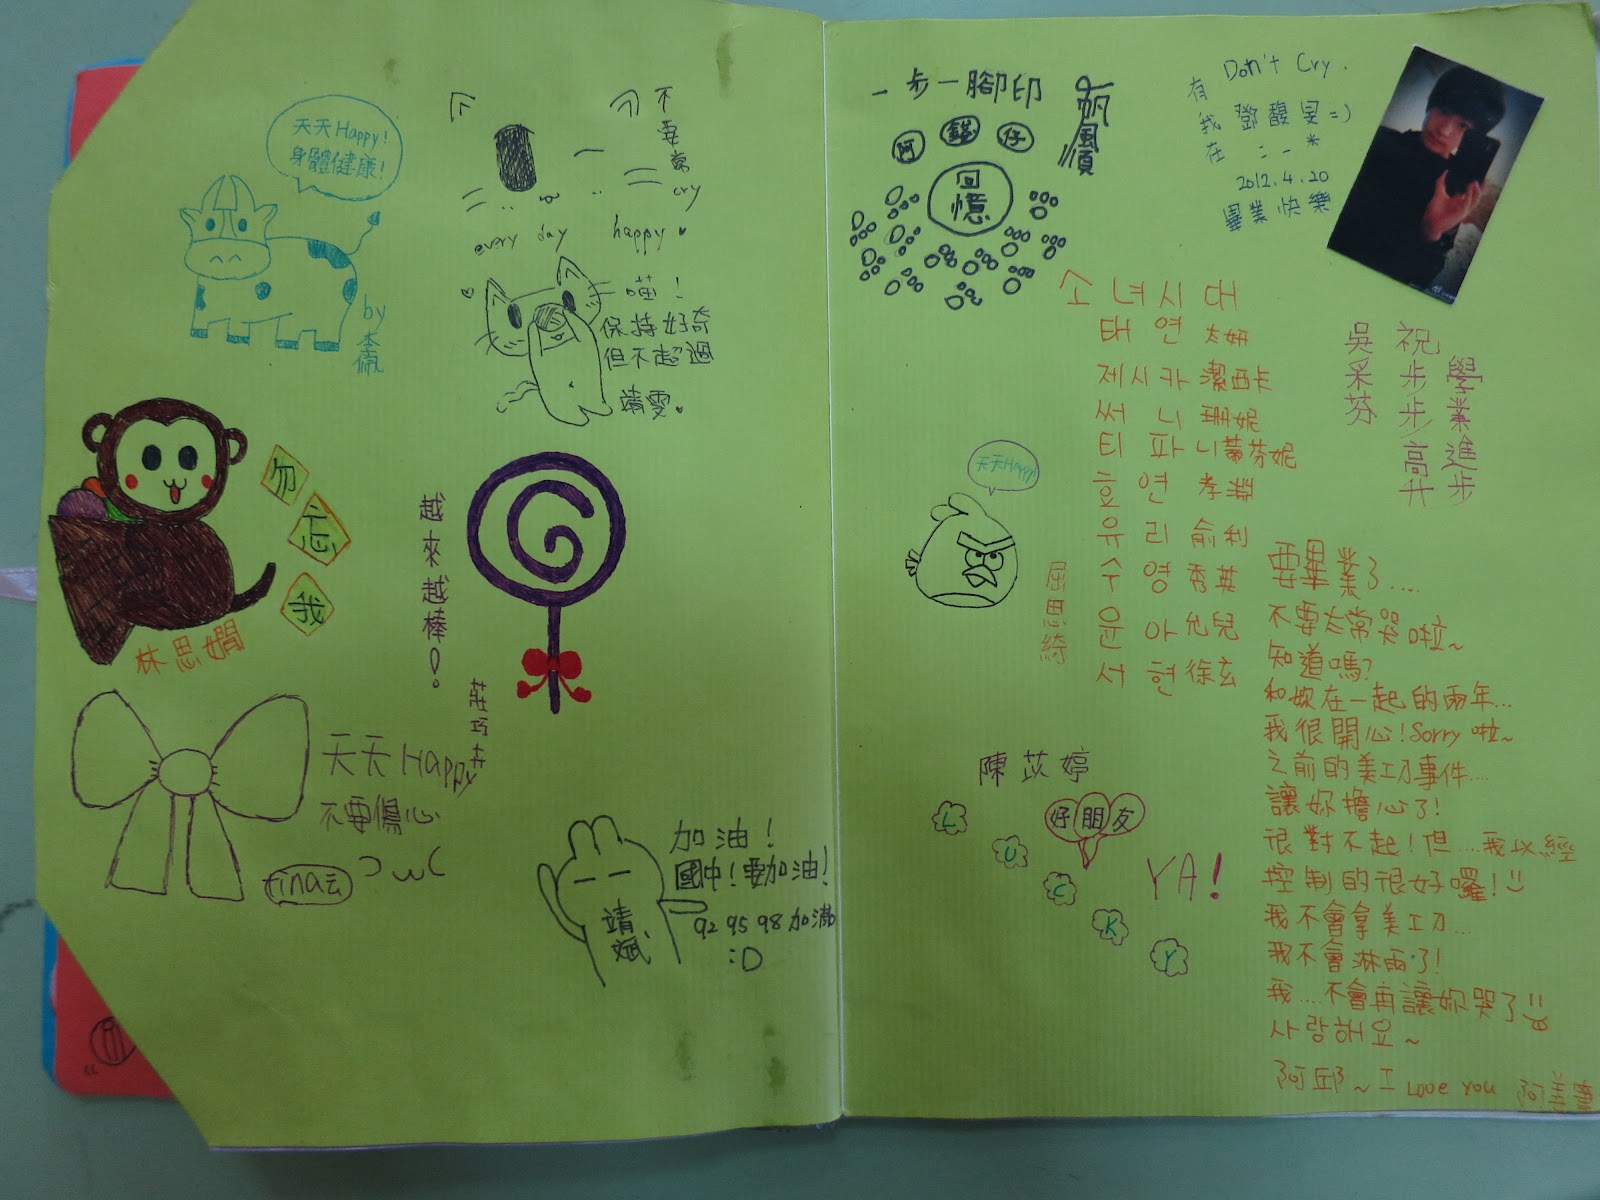 天天Happy!
身體健康!
by
不要常
cry
every day
happy
喵!
保持好奇
但不超過
靖雯
勿
忘
我
林思嫺
越來越棒!
莊巧
天天Happy
不要傷心
tina
加油!
國中!要加油!
92 95 98 加滿
:D
靖
斌
一步一腳印
帆風順
阿
仔
回憶
有 Don't Cry.
我 鄧馥旻=)
在 :-*
2012.4.20
畢業快樂
소녀시대
태연 太妍
제시카 潔西卡
써니 珊妮
티파니 蒂芬妮
효연 孝淵
유리 俞利
수영 秀英
윤아 允兒
서현 徐玄
祝步步高升
學業進步
吳采芬
天天Happy
屈思綺
要畢業了....
不要太常哭啦~
知道嗎?
和妳在一起的兩年...
我很開心!Sorry啦~
之前的美工刀事件....
讓妳擔心了!
很對不起!但....我以經
控制的很好囉!
我不會拿美工刀...
我不會淋雨了!
我....不會再讓妳哭了
사랑해요~
阿邱~I Love you
陳苡婷
好朋友
LUCKY
YA!